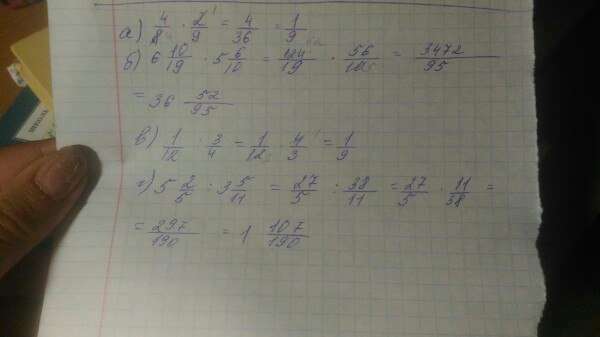 а) 4/8 · 2/9 = 4/36 = 1/9
б) 6 10/19 · 5 6/10 = 124/19 · 56/10 = 3472/95
= 36 52/95
в) 1/12 · 3/4 = 1/12 · 4/3 = 1/9
г) 5 2/5 · 3 5/11 = 27/5 · 38/11 = 27/5 · 11/38 =
= 297/190 = 1 107/190